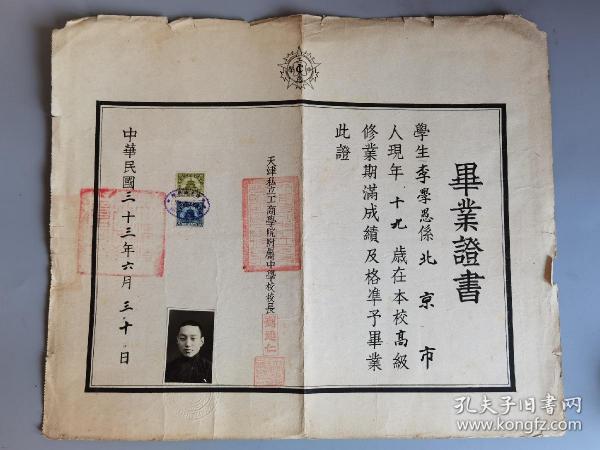 畢業證書
學生李學恩係北京市
人現年十九歲在本校高級
修業期滿成績及格準予畢業
此證
天津私立工商學院附屬中學校校長
中華民國三十三年六月三十日
孔夫子旧书网
www.kongfz.com